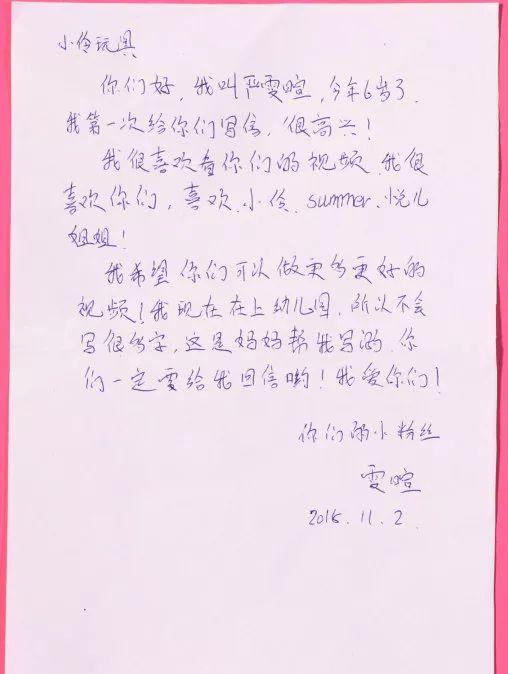 小伶玩具
你们好，我叫严雯暄，今年6岁了.
我第一次给你们写信，很高兴！
我很喜欢看你们的视频.我很
喜欢你们，喜欢.小伶.summer、悦儿
姐姐！
我希望你们可以做更多更好的
视频！我现在在上幼儿园.所以不会
写很多字，这是妈妈帮我写的.你
们一定要给我回信哟！我爱你们！
你们的小粉丝
雯暄
2015.11.2.